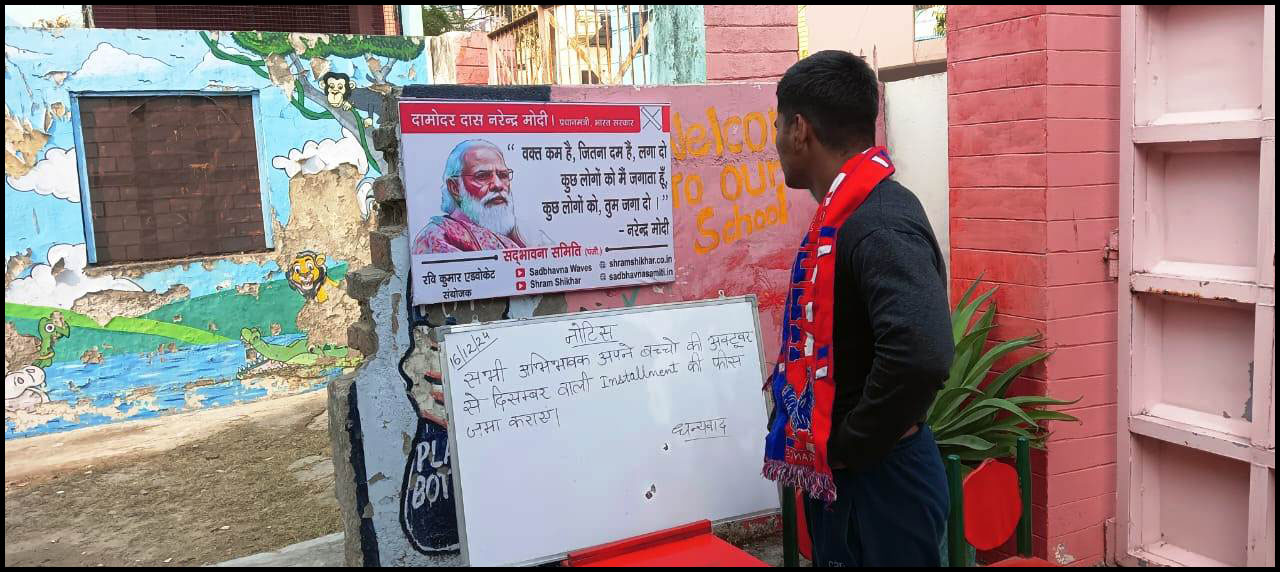 दामोदर दास नरेन्द्र मोदी। प्रधानमंत्री, भारत सरकार
“ वक्त कम है, जितना दम है, लगा दो
कुछ लोगों को मैं जगाता हूँ,
कुछ लोगों को, तुम जगा दो। ”
- नरेन्द्र मोदी
सद्भावना समिति (पंजी.)
रवि कुमार एडवोकेट
संयोजक
Sadbhavna Waves
Shram Shikhar
shramshikhar.co.in
sadbhavnasamiti.in
Welcom
TO OUR
School
16/12/24
नोटिस
सभी अभिभावक अपने बच्चो की अक्टूबर
से दिसम्बर वाली Installment की फीस
जमा कराए।
धन्यवाद